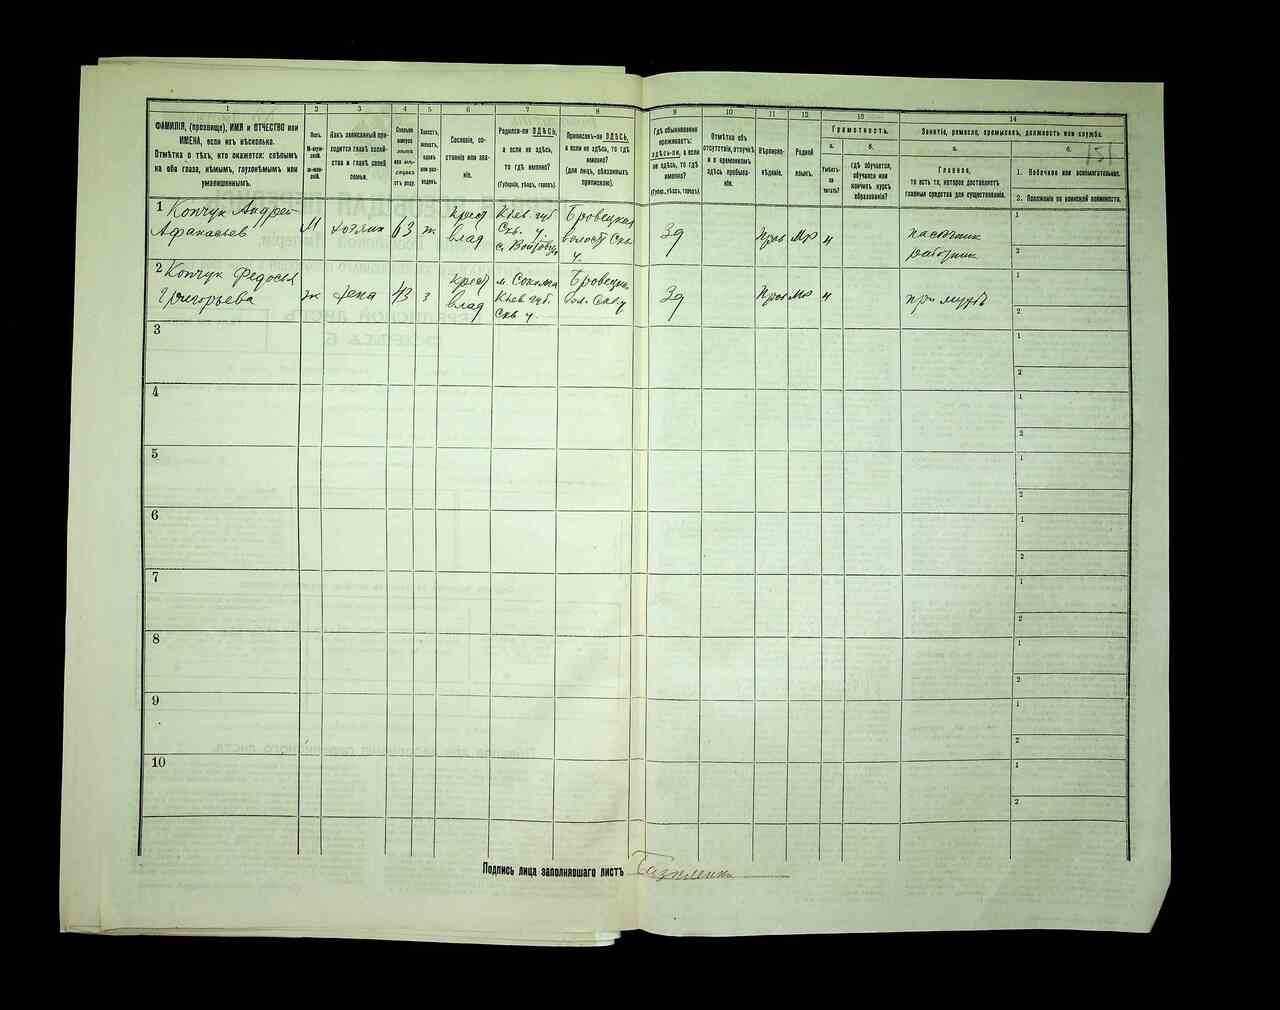 1 2 3 4 5 6 7 8 9 10 11 12 13 14
ФАМИЛІЯ, (прозвище), ИМЯ и ОТЧЕСТВО или
ИМЕНА, если ихъ нѣсколько.
Отмѣтка о тѣхъ, кто окажется: слѣпымъ
на оба глаза, нѣмымъ, глухонѣмымъ или
умалишеннымъ.
Полъ.
Какъ записанный при-
ходится главѣ хозяй-
ства и главѣ своей
семьи.
Сословіе, со-
стояніе или зва-
ніе.
Родился-ли ЗДѢСЬ,
а если не здѣсь,
то гдѣ именно?
(Губернія, уѣздъ, городъ).
Приписанъ-ли ЗДѢСЬ,
а если не здѣсь, то гдѣ
именно?
(для лицъ, обязанныхъ
припискою).
Гдѣ обыкновенно
проживаетъ:
здѣсь-ли, а если
не здѣсь, то гдѣ
именно?
(Губер., уѣздъ, городъ).
Отмѣтка объ
отсутствіи, отлучкѣ
и о временномъ
здѣсь пребыва-
ніи.
Вѣроиспо-
вѣданіе.
Родной
языкъ.
Грамотность.
а.
Умѣетъ-
ли
читать?
б.
гдѣ обучается,
обучался или
кончилъ курсъ
образованія?
Занятіе, ремесло, промыселъ, должность или служба.
а.
Главное,
то есть то, которое доставляетъ
главныя средства для существованія.
б.
151
1. Побочное или вспомогательное.
2. Положеніе по воинской повинности.
1 Кончук Андрей
Афанасьев
М
хозяин
63
ж
крест
влад
Кіев. губ
Скв. у.
Бровецкая
волость Скв
у.
Зд
Прав
Мр
н
пасѣчник
работник
1
2
2 Кончук Федосья
Григорьева
ж
жена
43
з
крест
влад
Кіев губ.
Скв у.
Бровецк
вол. Скв у
Зд
Прав
Мр
н
при мужѣ
1
2
3
1
2
4
1
2
5
1
2
6
1
2
7
1
2
8
1
2
9
1
2
10
1
2
Подпись лица заполнявшаго листъ